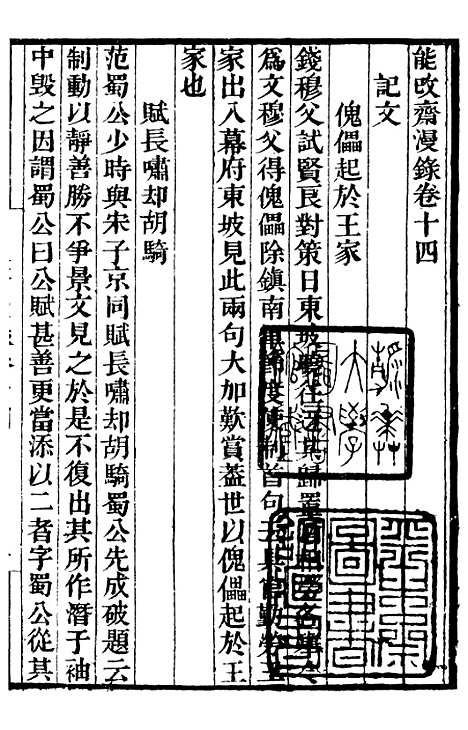 能改齋漫錄卷十四
記文
傀儡起於王家
錢穆父試賢良對策日東坡往其歸置各令
爲文穆父得傀儡除鎮南軍節度使制首句云具官勤勞王
家出入幕府東坡見此兩句大加歎賞葢世以傀儡起於王
家也
賦長嘯却胡騎
范蜀公少時與宋子京同賦長嘯却胡騎蜀公先成破題云
制動以靜善勝不爭景文見之於是不復出其所作潛于袖
中毀之因謂蜀公曰公賦甚善更當添以二者字蜀公從其
大學
圖書